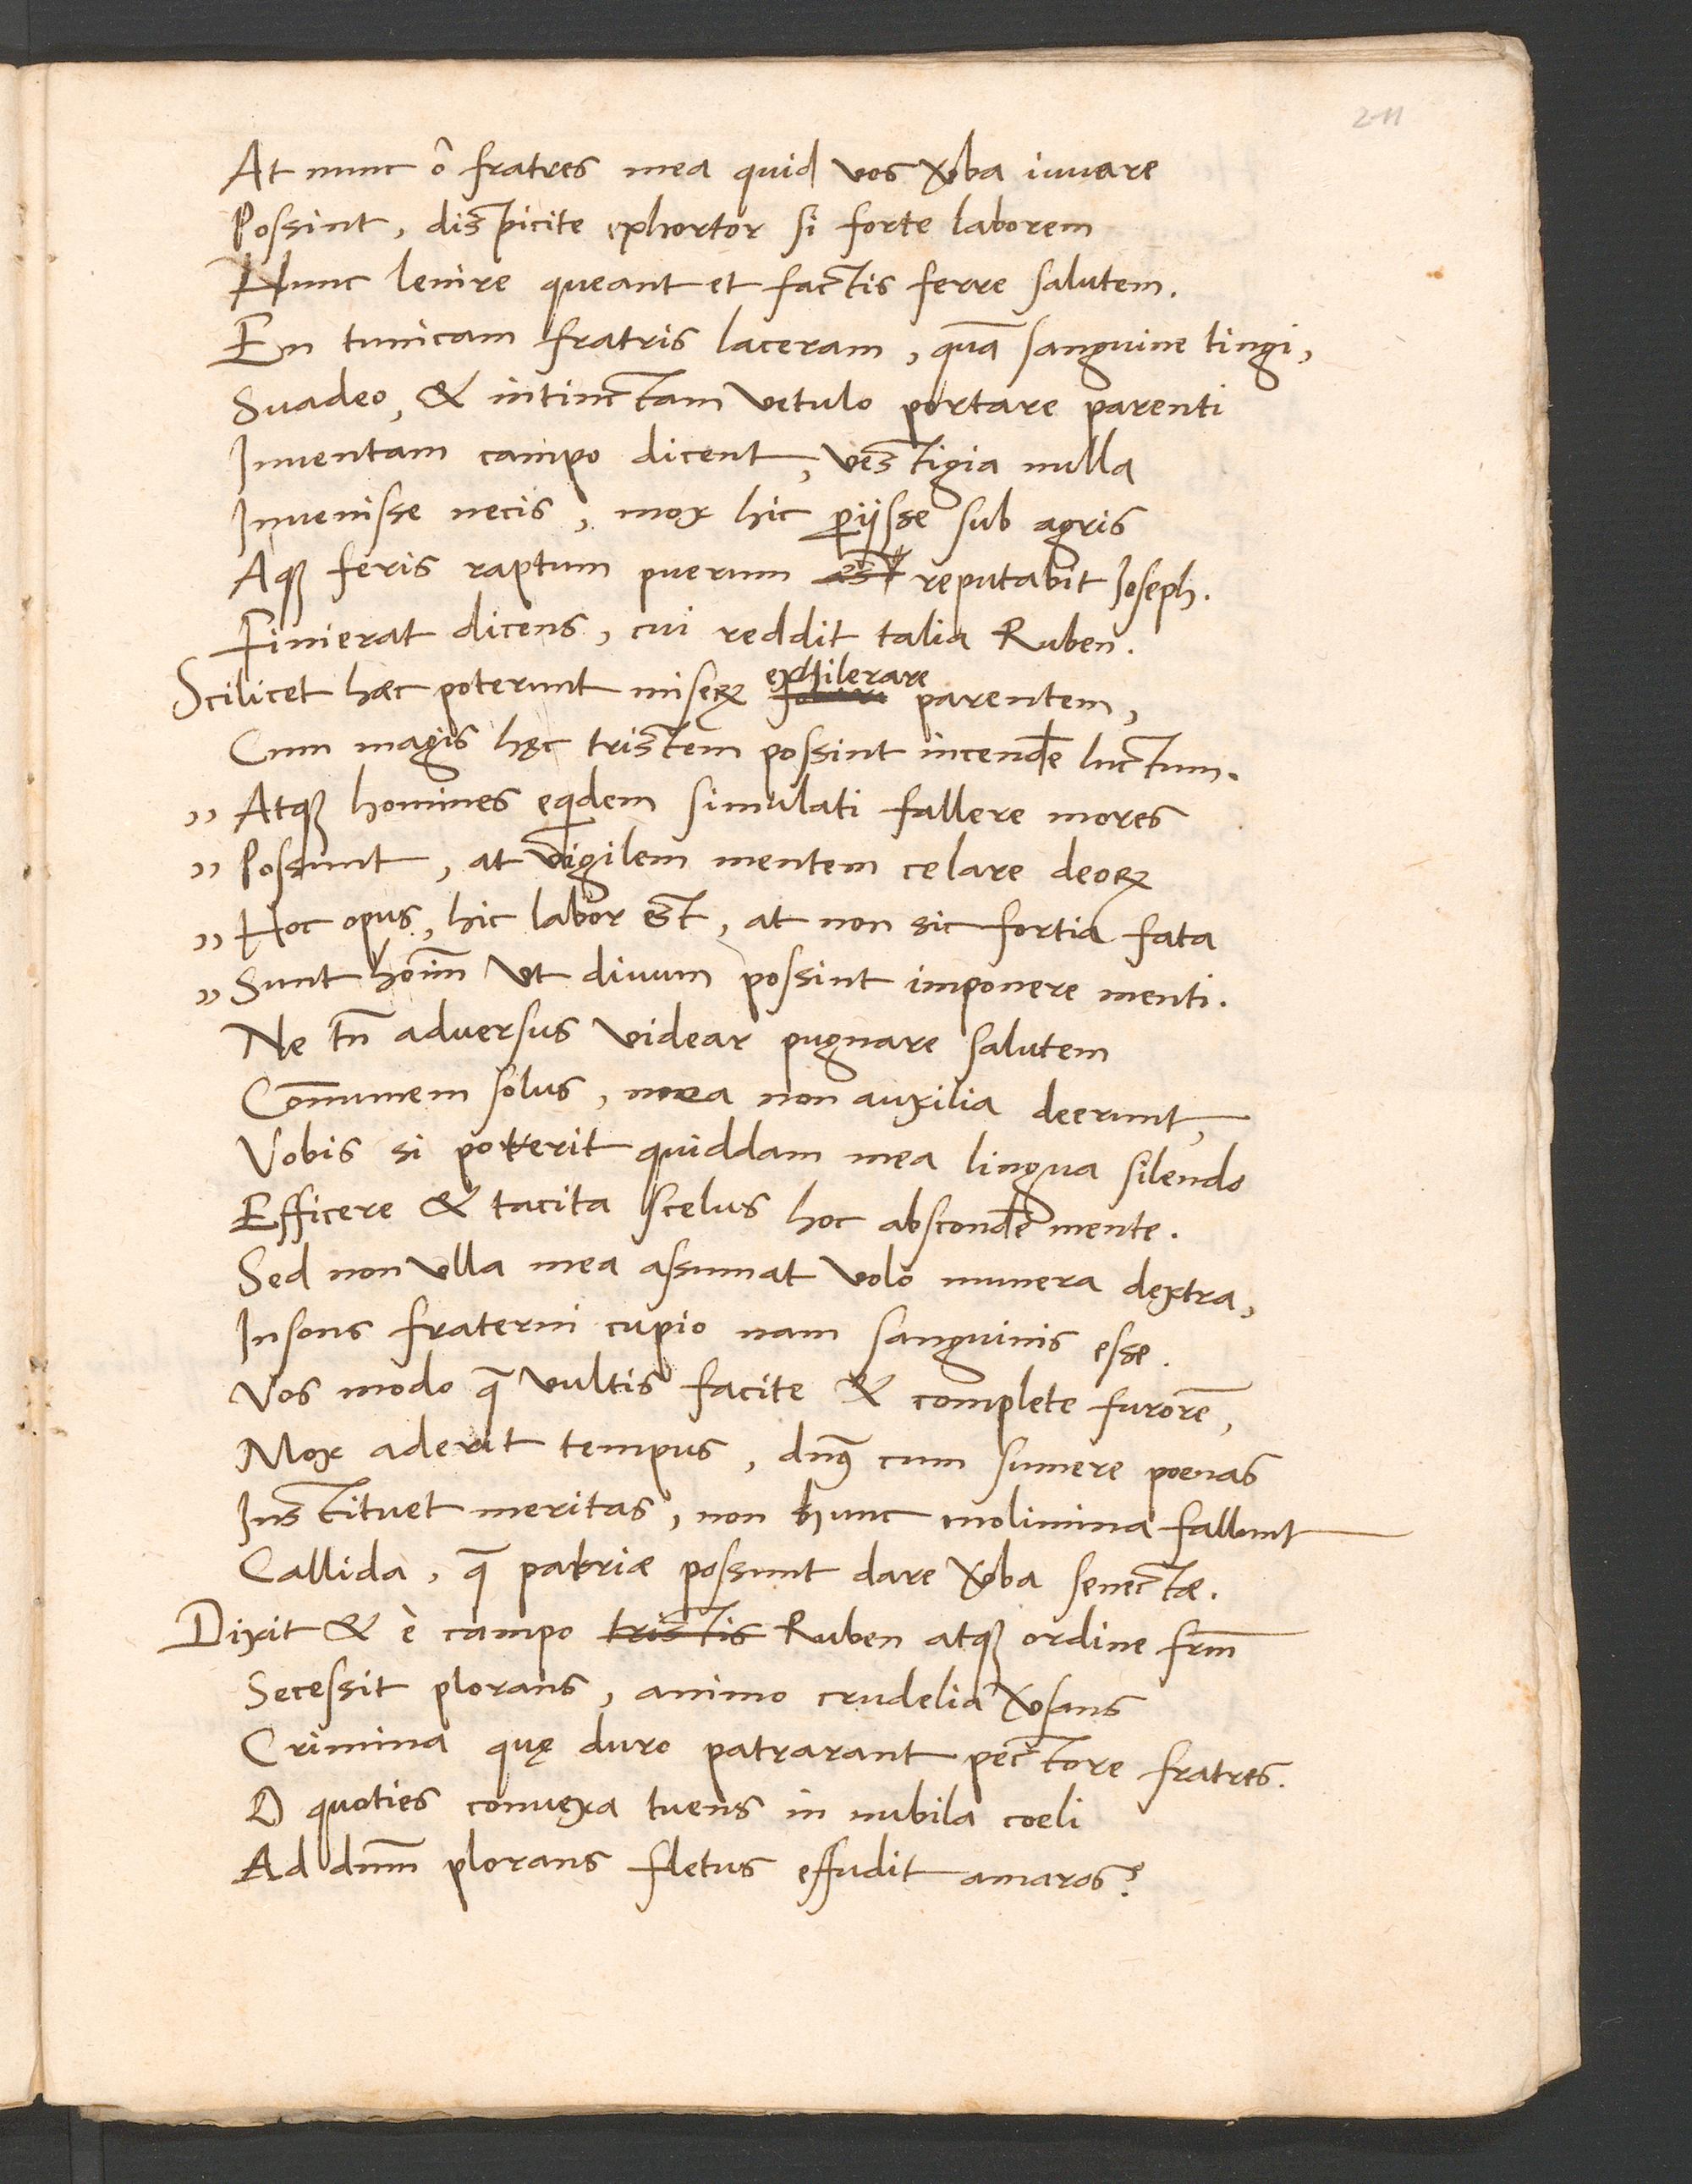 211
At nunc ô fratres mea quid vos v̄ba iuuare
Possint, dispicite exhortor si forte laborem
Nunc lenire queant et factis ferre salutem.
En tunicam fratris laceram, quā sanguine tingi,
Suadeo, & intinctam vetulo portare parenti
Inuentam campo dicent, vestigia nulla
Inuenisse necis, mox hic ꝑijsse sub agris
Aꝗ feris raptum puerum est reputabit Joseph.
Finierat dicens, cui reddit talia Ruben.
Scilicet hæc poterunt miseꝝ exhilerare parentem,
Cum magis hęc tristem possint incendꝛe luctum.
,, Atqꝫ homines eqͥdem simulati fallere mores
,, Possunt, at vigilem mentem celare deoꝝ
,, Hoc opus, hic labor est, at non sic fortia fata
,, Sunt hoīm vt diuum possint imponere menti.
Ne tn̄ aduersus videar pugnare salutem
Com̄unem solus, mea non auxilia deerunt,
Vobis si potterit quiddam mea lingua silendo
Efficere & tacita scelus hoc abscondꝛe mente.
Sed non vlla mea assumat volo munera dextra,
Insons fraterni cupio nam sanguinis esse.
Vos modo q̄ vultis facite & complete furorē,
Mox aderit tempus, dn̄s cum sumere poenas
Instituet meritas, non hunc molimina fallunt
Callida, q̄ patriæ possunt dare v̄ba senectæ.
Dixit & è campo tristis Ruben atqꝫ ordine frm̄
Secessit plorans, animo crudelia v̄sans
Crimina quę duro patrarant pectore fratres.
O quoties conuexa tuens in nubila coeli
Ad dnm̄ plorans fletus effudit amaros?